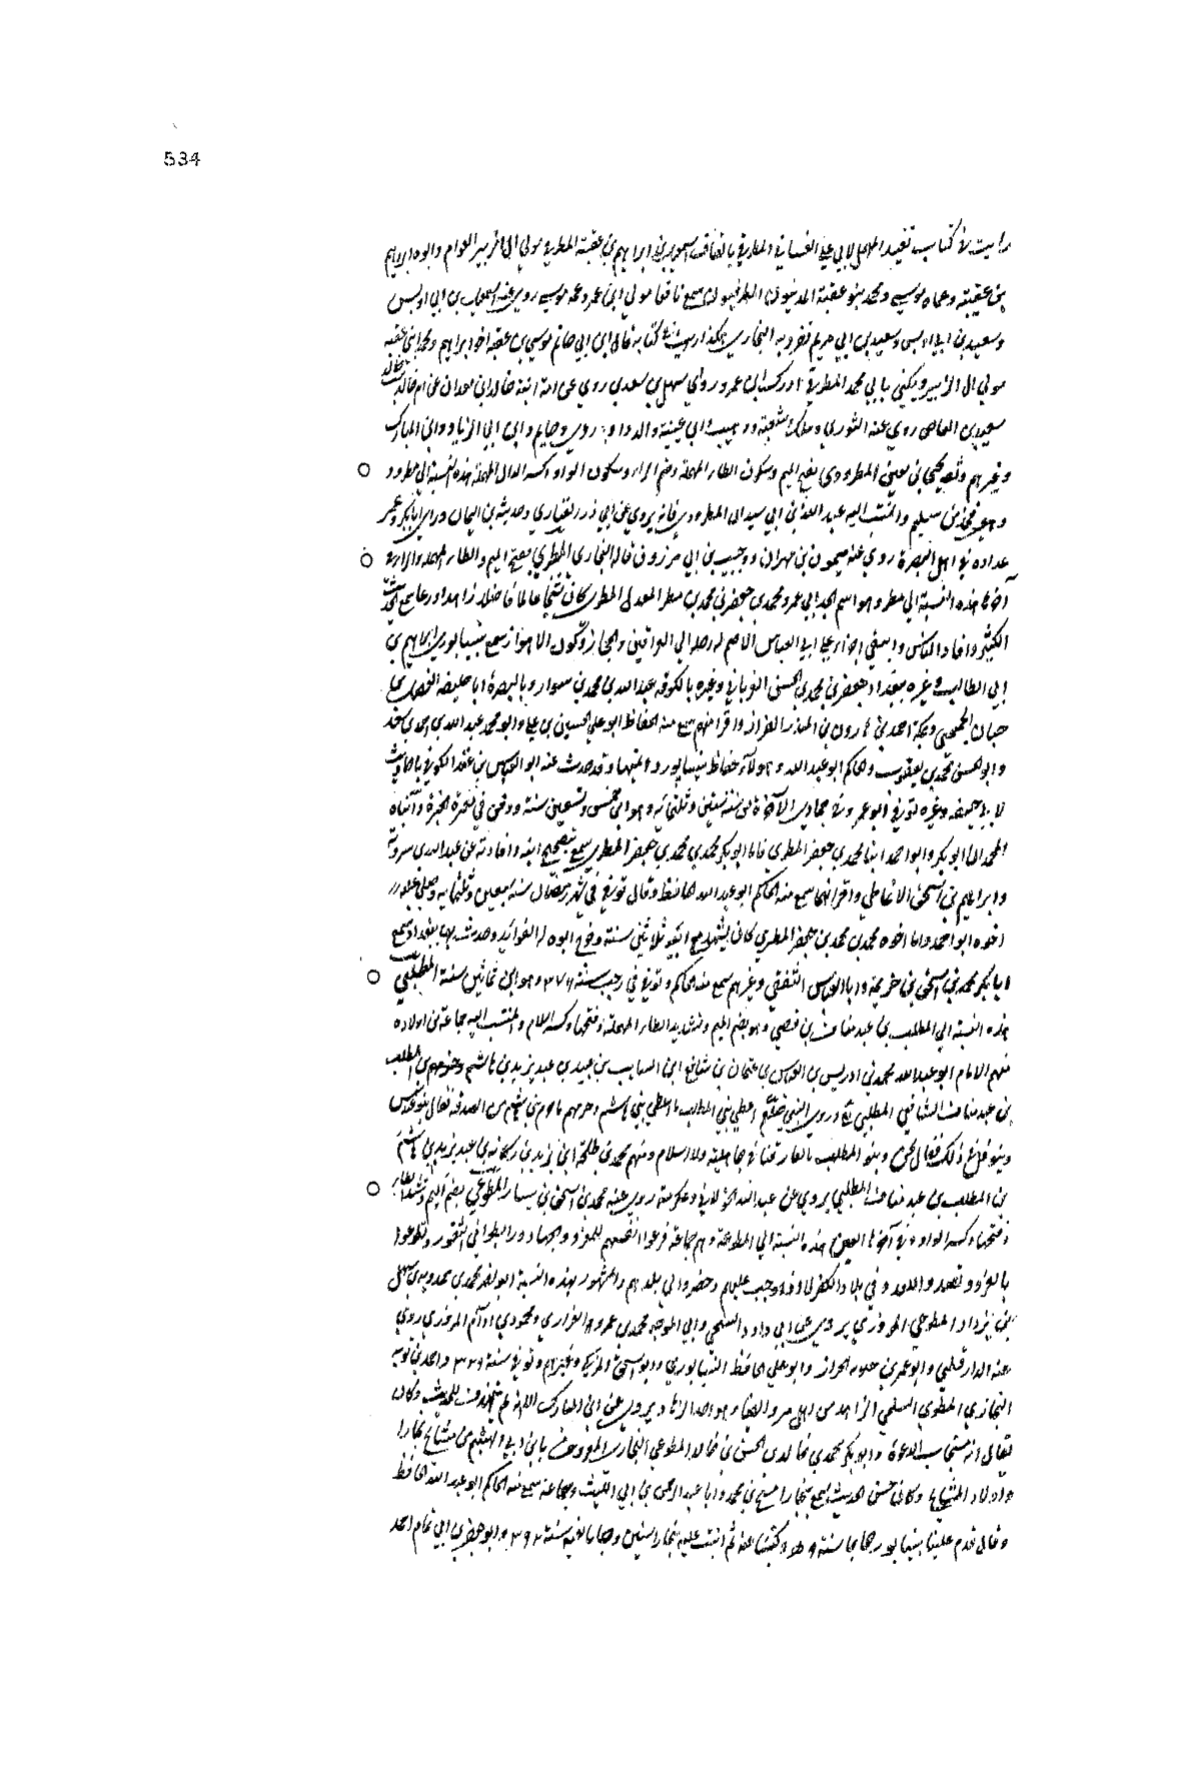 534
رايت في كتاب تقييد المهمل لابي علي الغساني المطرقي بالقاف اسمعيل بن ابراهيم بن عقبة المطرقي مولى ال الزبير العوام وابوه ابراهيم
بن عقبة وعماه موسى ومحمد بنو عقبة المدنيون المطرقيون سمع نافعا مولى ابن عمر وعمه موسى روى عنه اسمعيل بن ابي اويس
وسعيد بن ابي مريم تفرد به البخاري هكذا رايت في كتابه قال ابن ابي حاتم موسى بن عقبة اخو ابراهيم ومحمد ابني عقبة
مولى ال الزبير ويكنى بابي محمد المطرقي ادرك ابن عمر وراى سهل بن سعد روى عن امه ابنة خالد بن معدان عن ام خالد بنت خالد
سعيد بن العاص روى عنه الثوري ومالك وشعبة ووهيب وابن عيينة والدراوردي وحاتم وابن ابي الزناد وابن المبارك
وغيرهم وثقه يحيى بن معين المطرودي بفتح الميم وسكون الطاء المهملة وضم الراء وسكون الواو وكسر الدال المهملة هذه النسبة الى مطرود
وهو فخذ من سليم والمنتسب اليه عبد الله بن ابي سيدان المطرودي فانه يروي عن ابي ذر الغفاري وحذيفة بن اليمان وراى ابا بكر وعمر
عداده في اهل البصرة روى عنه ميمون بن مهران وحبيب بن ابي مرزوق قاله البخاري المطري بفتح الميم والطاء المهملة والراء في
آخرها هذه النسبة الى مطر وهو اسم لجد ابي عمرو محمد بن جعفر بن محمد بن مطر المعدل المطري كان شيخا عالما فاضلا زاهدا ورعا سمع الحديث
الكثير وافاد الناس وانتقى اجزاء على ابي العباس الاصم له رحلة الى العراقين والحجاز وكور الاهواز سمع بنيسابور ابراهيم بن
ابي طالب وغيره ببغداد جعفر بن محمد بن الحسن الفريابي وغيره بالكوفة عبد الله بن محمد بن سوار وبالبصرة ابا خليفة الفضل بن
حباب الجمحي وبمكة احمد بن هارون بن المنذر القزاز واقرانهم سمع منه الحفاظ ابو علي الحسين بن علي وابو محمد عبد الله بن احمد بن سعد
وابو الحسين محمد بن يعقوب والحاكم ابو عبد الله وهؤلاء حفاظ نيسابور وقد حدث عنه ابو العباس بن عقدة الكوفي باحاديث
لابي خليفة وغيره توفي ابو عمرو في جمادى الآخرة من سنة ستين وثلثمائة وهو ابن خمس وتسعين سنة ودفن في مقبرة الحيرة وابناه
ابو بكر وابو احمد ابنا محمد بن جعفر المطري فاما ابو بكر محمد بن محمد بن جعفر المطري سمع بتصحيح ابيه وافادته عن عبد الله بن شيرويه
وابراهيم بن اسحق الانماطي واقرانهما سمع منه الحاكم ابو عبد الله الحافظ وقال توفي في شهر رمضان سنة سبعين وثلثمائة وصلى عليه
اخوه ابو احمد واما اخوه محمد بن محمد بن جعفر المطري كان يشهد مع ابيه نحو ثلاثين سنة وخرج ابوه له الفوائد وحدث بها ببغداد سمع
ابا بكر محمد بن اسحق بن خزيمة وابا العباس الثقفي وغيرهم سمع منه الحاكم وتوفي في رجب سنة ٣٧٦ وهو ابن ثمانين سنة المطلبي
هذه النسبة الى المطلب بن عبد مناف بن قصي وهو بضم الميم وتشديد الطاء المهملة وفتحها وكسر اللام والمنتسب اليه جماعة من اولاده
منهم الامام ابو عبد الله محمد بن ادريس بن العباس بن عثمان بن شافع ابن السايب بن عبيد بن عبد يزيد بن هاشم المطلب
بن عبد مناف الشافعي المطلبي وروي النبي صلعم اعطى بني المطلب ما اعطى بني هاشم وحرمهم من الصدقة فقال بنو عبد شمس
وبنو نوفل في ذلك فقال نحن وبنو المطلب ما افترقنا في جاهلية ولا اسلام ومنهم محمد بن طلحة ابن يزيد بن ركانة بن عبد يزيد بن هاشم
بن المطلب بن عبد مناف المطلبي يروي عن عبد الله الخولاني وعكرمة روى عنه محمد بن اسحق بن يسار المطوعي بضم الميم وتشديد الطاء
وفتحها وكسر الواو وفي آخرها العين هذه النسبة الى المطوعة وهم جماعة فرغوا انفسهم للغزو والجهاد ورابطوا في الثغور وتطوعوا
بالغزو وقصدوا الغزو في بلاد الكفر لا اذا وجب عليهم وحضر الى بلدهم والمشهور بهذه النسبة محمد بن حمدويه بن سهل
بن يزداد المطوعي المروزي يروي عن ابي داود السنجي وابي الموجه محمد بن عمرو الفزاري ومحمود بن آدم المروزي روى
عنه الدارقطني وابو عمر بن حيويه الخزاز وابو علي الحافظ النيسابوري وابو اسحق المزكي وغيرهم وتوفي سنة ٣٢٩ واحمد بن توبة
الغازي المطوعي السلمي الزاهد من اهل مرو وهو احد الزهاد يروي عن ابن المبارك الا انه لم يتفرغ للحديث وكان
يقال انه مستجاب الدعوة وابو بكر محمد بن خالد بن الحسن بن خالد المطوعي البخاري المعروف بابن ابي الهيثم من مشايخ بخارا
واولاد المشايخ وكان حسن الحديث سمع ببخارا مسبح بن محمد وابا عبد الرحمن بن ابي الليث وجماعة سمع منه الحاكم ابو عبد الله الحافظ
وقال قدم علينا نيسابور حاجا سنة وكتبنا عنه ثم انتقيت عليه ببخارا سنين وجاءنا نعيه سنة ٣٦٢ وابو جعفر بن ابي تمام احمد